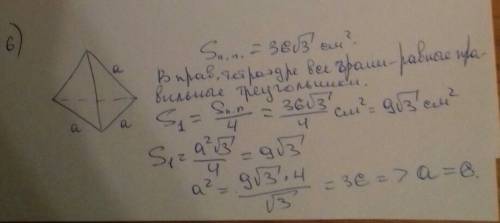 6)
a
a
a
Sп.п. = 36√3 см².
В прав. тетраэдре все грани - равные пра-
вильные треугольники.
S₁ = Sп.п./4 = 36√3/4 см² = 9√3 см²
S₁ = a²√3/4 = 9√3
a² = 9√3·4/√3 = 36 => a = 6.